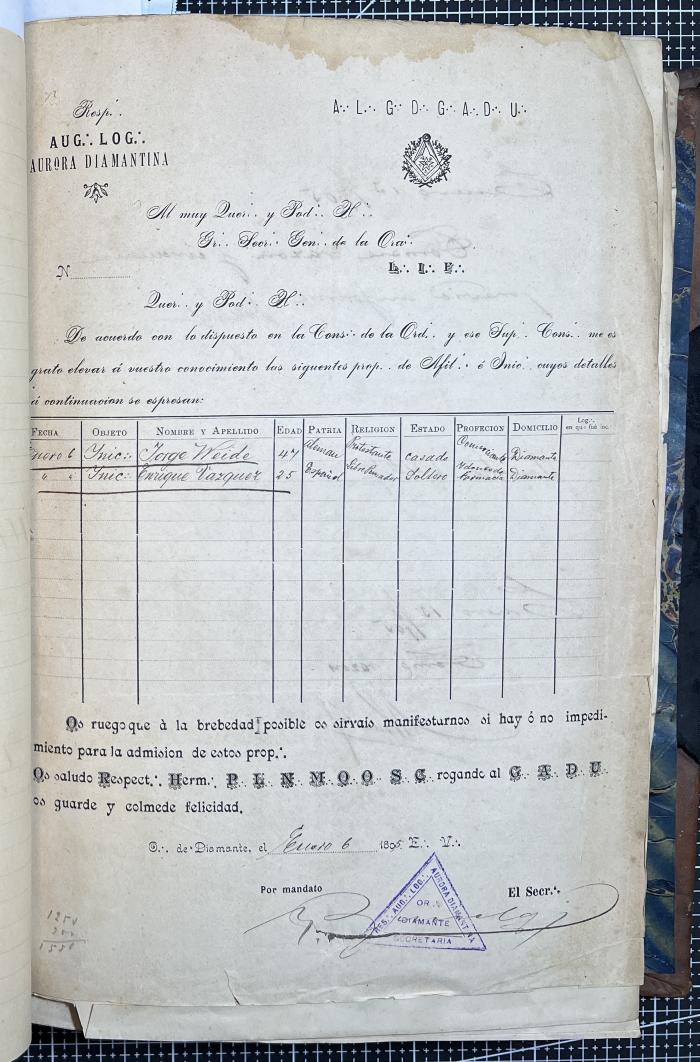 Resp∴
A∴ L∴ G∴ D∴ G∴ A∴ D∴ U∴
AUG∴ LOG∴
AURORA DIAMANTINA
Al muy Quer∴ y Pod∴ H∴
Gr∴ Secr∴ Gen∴ de la Ord∴
N
L∴ I∴ F∴
Quer∴ y Pod∴ H∴
De acuerdo con lo dispuesto en la Cons∴ de la Ord∴ y ese Sup∴ Cons∴ me es
grato elevar á vuestro conocimiento las siguentes prop∴ de Afil∴ é Inic∴ cuyos detalles
á continuacion se espresan:
FECHA OBJETO NOMBRE Y APELLIDO EDAD PATRIA RELIGION ESTADO PROFECION DOMICILIO Log∴ en que fué inc.
Enero 6 Inic∴ Jorge Weide 47 Aleman Protestante casado Comerciante Diamante
" " Inic∴ Enrique Vazquez 25 Español Libre Pensador Soltero Farmacia Diamante
Os ruego que à la brebedad posible os sirvais manifestarnos si hay ó no impedi-
miento para la admision de estos prop∴
Os saludo Respect∴ Herm∴ P∴ L∴ N∴ M∴ Q∴ O∴ S∴ C∴ rogando al G∴ A∴ D∴ U∴
os guarde y colmede felicidad.
O∴ de Diamante, el Enero 6 1895 E∴ V∴
Por mandato
El Secr∴
RES∴ AUG∴ LOG∴ AURORA DIAMANTINA
OR∴
DIAMANTE
SECRETARIA
1250
300
1550